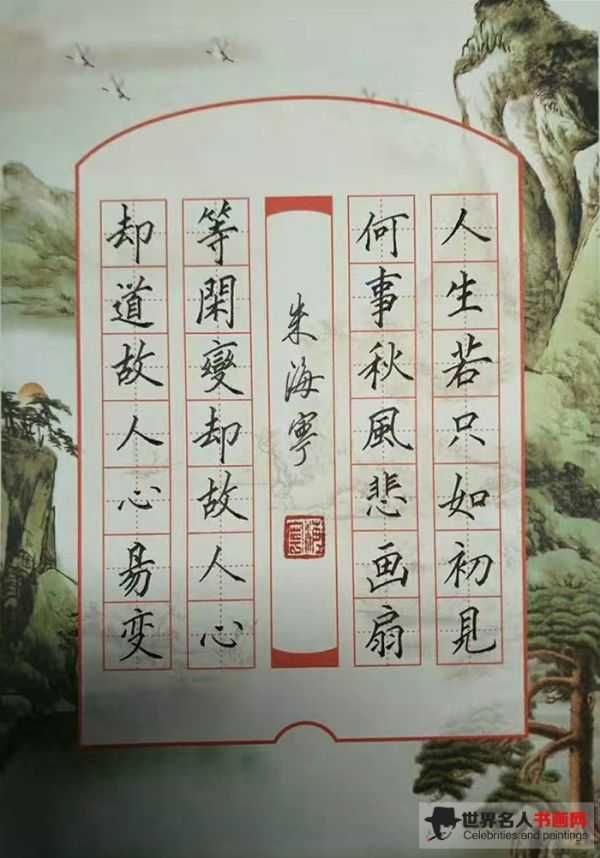 人生若只如初見
何事秋風悲画扇
朱海寧
等閑變却故人心
却道故人心易变
世界名人书画网
Celebrities and paintings